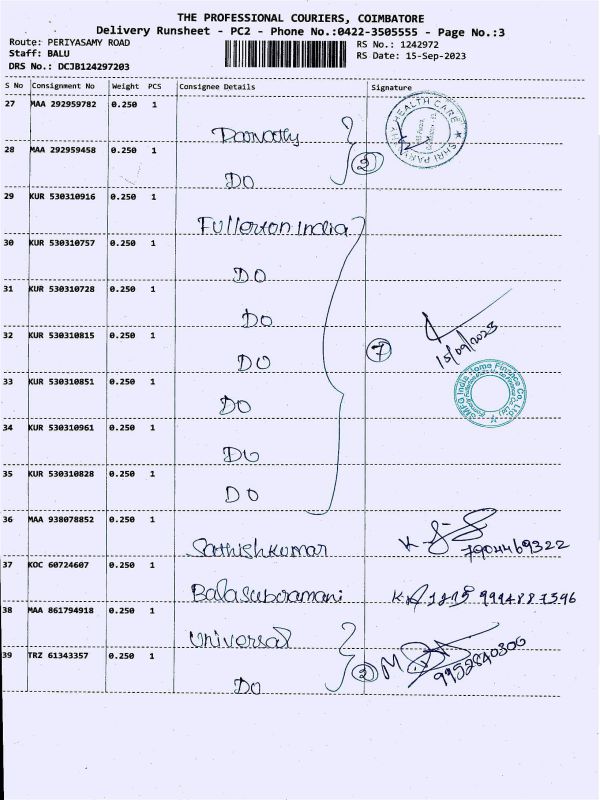 THE PROFESSIONAL COURIERS, COIMBATORE
Delivery Runsheet - PC2 - Phone No.:0422-3505555 - Page No.:3
Route: PERIYASAMY ROAD
RS No.: 1242972
Staff: BALU
RS Date: 15-Sep-2023
DRS No.: DCJB124297203
S No Consignment No Weight PCS Consignee Details Signature
27 MAA 292959782 0.250 1
SHRI PARVATHY HEALTH CARE
28 MAA 292959458 0.250 1
2
DO
29 KUR 530310916 0.250 1
Fullerton India
30 KUR 530310757 0.250 1
DO
31 KUR 530310728 0.250 1
DO
32 KUR 530310815 0.250 1
15/09/2023
DO
7
33 KUR 530310851 0.250 1
SMFG India Home Finance Co. Ltd.
DO
34 KUR 530310961 0.250 1
DO
35 KUR 530310828 0.250 1
DO
36 MAA 938078852 0.250 1
Sathishkumar
7904469322
37 KOC 60724607 0.250 1
Balasubramani
38 MAA 861794918 0.250 1
Universal
39 TRZ 61343357 0.250 1
2
9952840300
DO